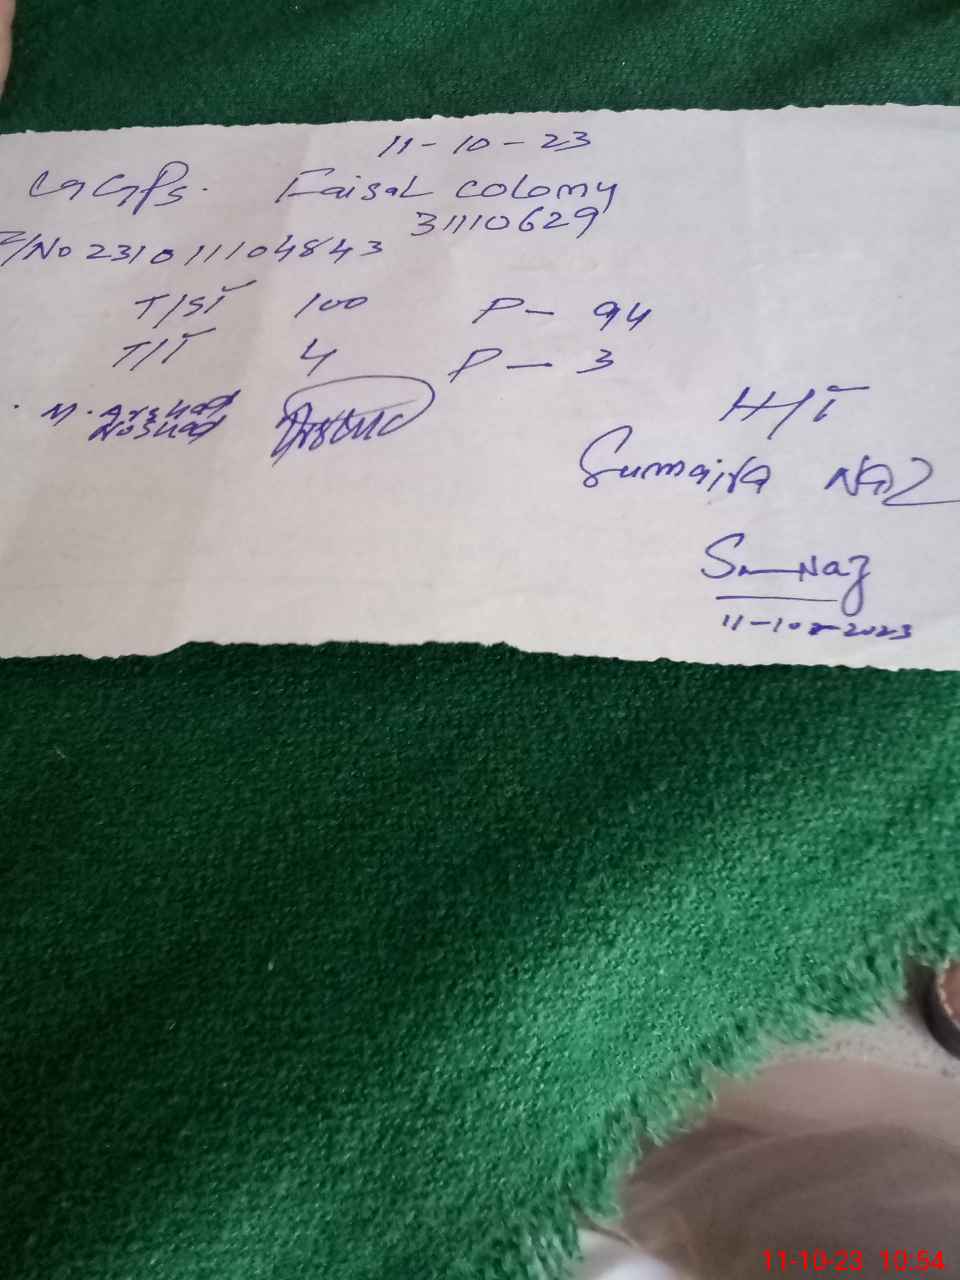 11-10-23
GGPS. Faisal colony
31110629
/No 231011104843
T/ST 100 P- 94
T/T 4 P- 3
M. Arshad
Noshad
H/T
Sumaira Naz
S Naz
11-10-2023
11-10-23 10:54